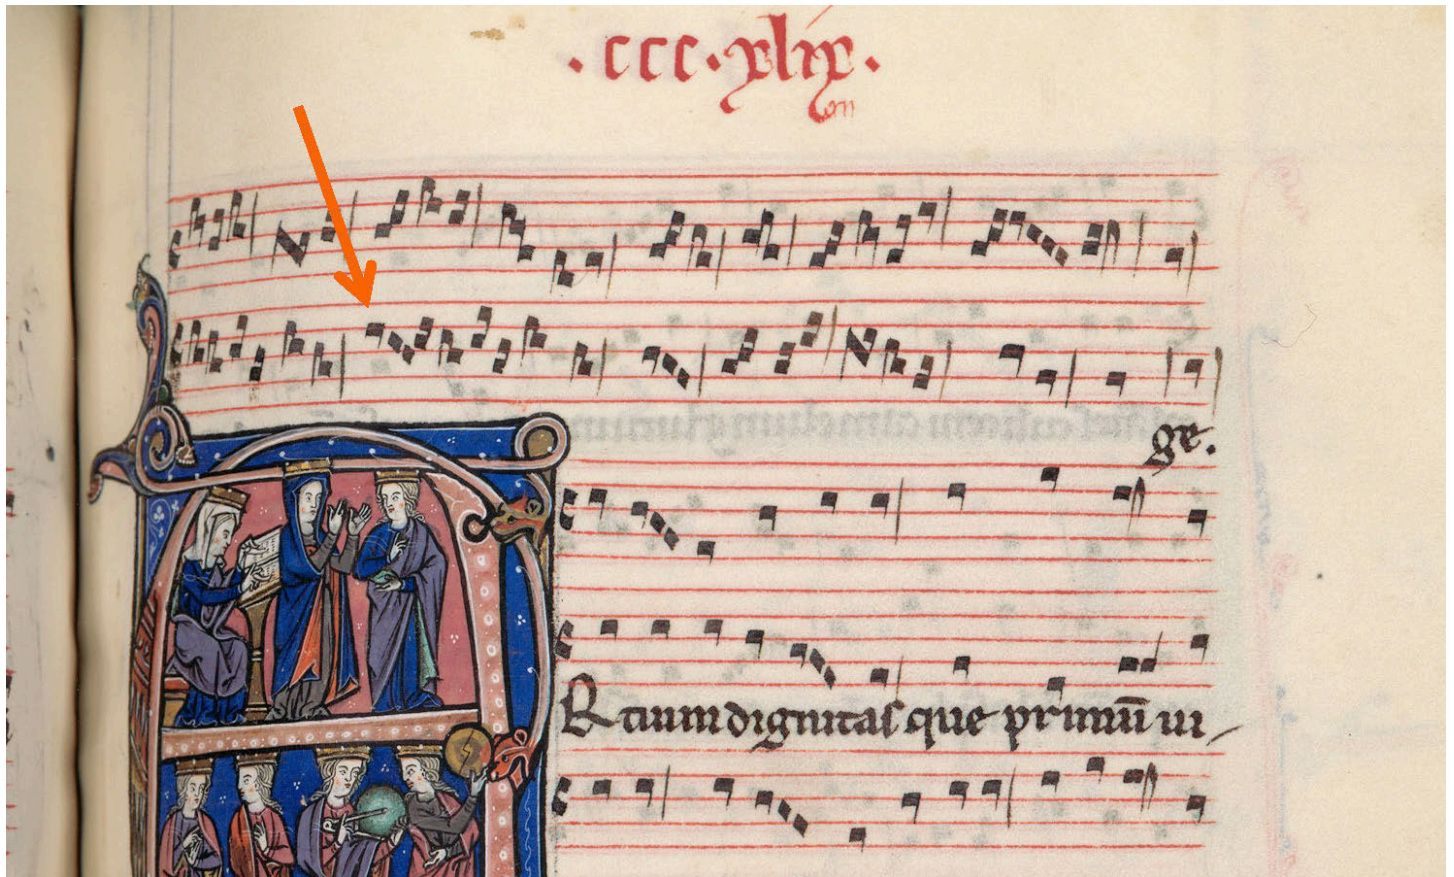 .ccc.xlix.
ge.
Rtium dignitas que primū ui